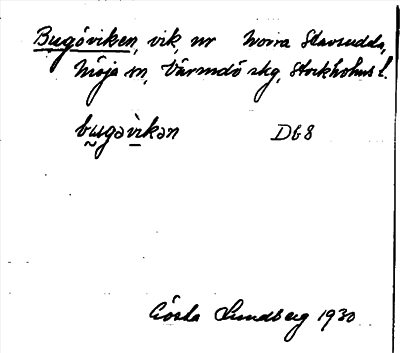 Bugóviken, vik, nr Norra Stavsudda,
Möja sn, Värmdö skg, Stockholms l.
bugəvìkən D68
Gösta Lundberg 1930